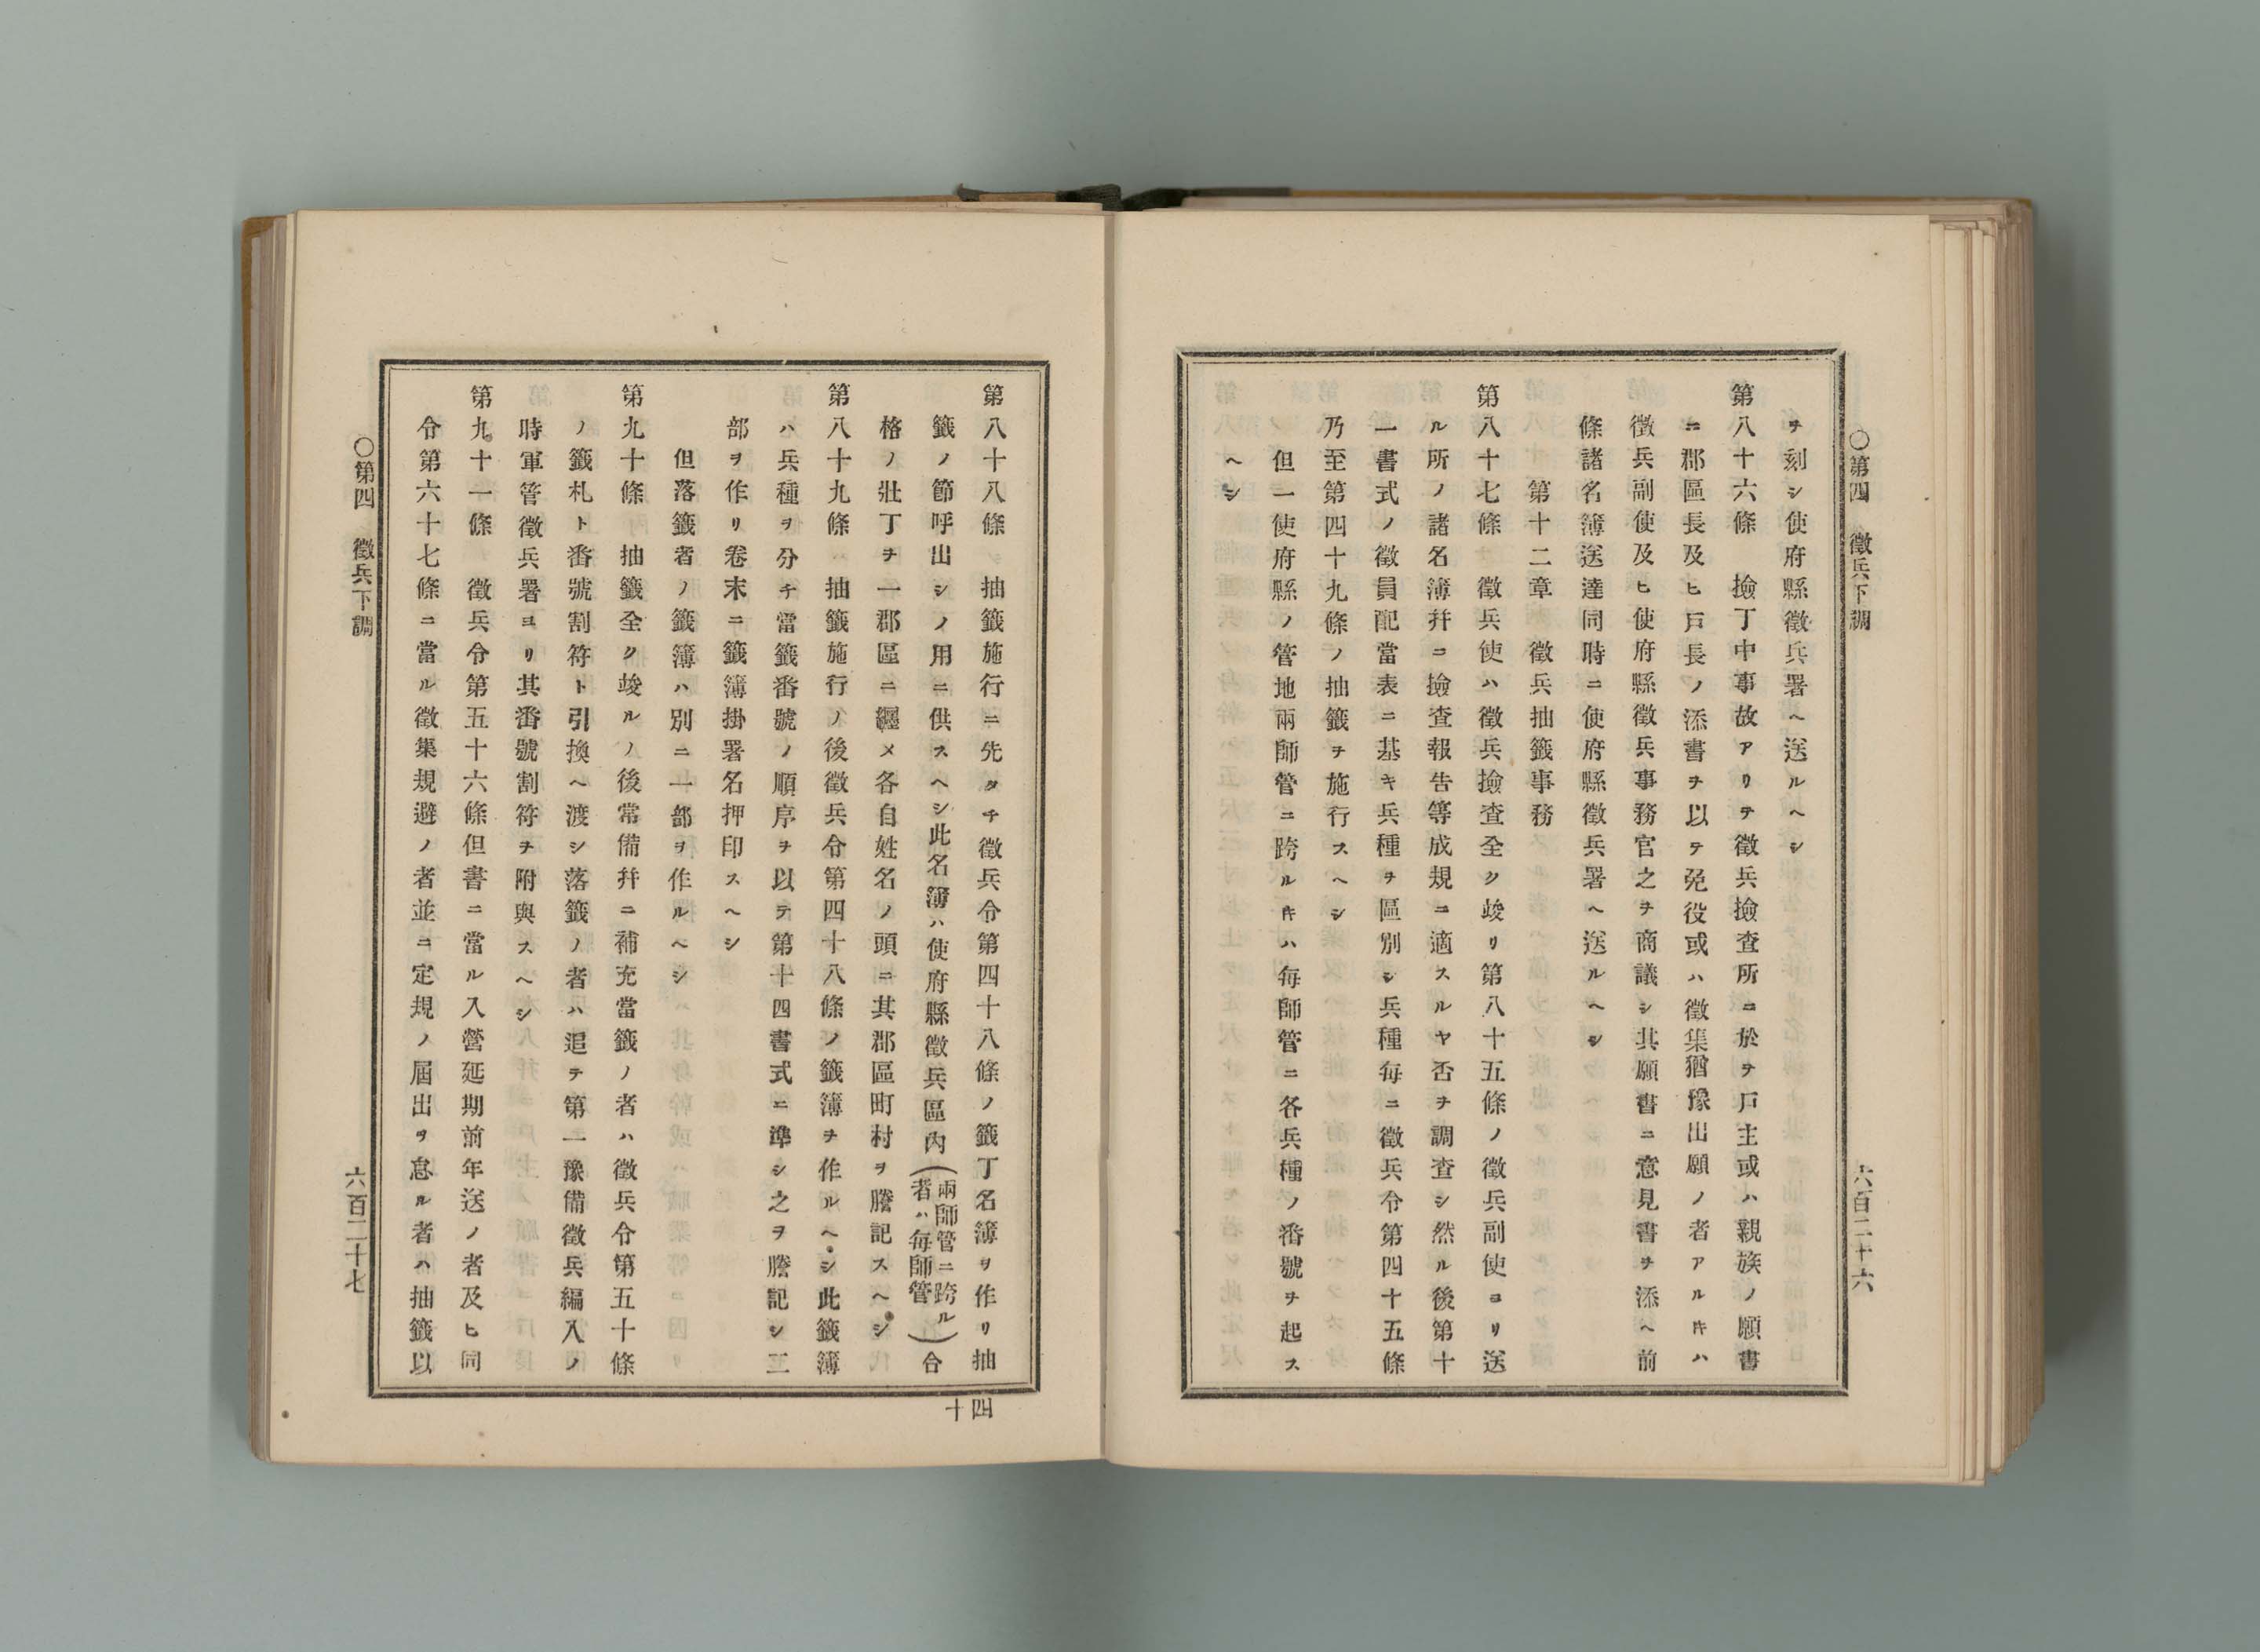 〇第四　徵兵下調
六百二十六
ヲ刻シ使府縣徵兵署ヘ送ルヘシ
第八十六條　撿丁中事故アリテ徵兵撿査所ニ於ヲ戸主或ハ親族ノ願書
ニ郡區長及ヒ戸長ノ添書ヲ以テ免役或ハ徵集猶豫出願ノ者アルキハ
徵兵副使及ヒ使府縣徵兵事務官之ヲ商議シ其願書ニ意見書ヲ添ヘ前
條諸名簿送達同時ニ使府縣徵兵署ヘ送ルヘシ
第十二章　徵兵抽籤事務
第八十七條　徵兵使ハ徵兵撿査全ク竣リ第八十五條ノ徵兵副使ヨリ送
ル所ノ諸名簿幷ニ撿査報告等成規ニ適スルヤ否ヲ調查シ然ル後第十
一書式ノ徵員配當表ニ基キ兵種ヲ區別シ兵種每ニ徵兵令第四十五條
乃至第四十九條ノ抽籤ヲ施行スヘシ
但一使府縣ノ管地兩師管ニ跨ルキハ每師管ニ各兵種ノ番號ヲ起ス
ヘシ
第八十八條　抽籤施行ニ先タチ徵兵令第四十八條ノ籤丁名簿ヲ作リ抽
籤ノ節呼出シノ用ニ供スヘシ此名簿ハ使府縣徵兵區內（兩師管ニ跨ル者ハ每師管）合
格ノ壯丁ヲ一郡區ニ纒メ各自姓名ノ頭ニ其郡區町村ヲ謄記スヘシ
第八十九條　抽籤施行ノ後徵兵令第四十八條ノ籤簿ヲ作ルヘシ此籤簿
ハ兵種ヲ分チ當籤番號ノ順序ヲ以テ第十四書式ニ準シ之ヲ謄記シ二
部ヲ作リ卷末ニ籤簿掛署名押印スヘシ
但落籤者ノ籤簿ハ別ニ一部ヲ作ルヘシ
第九十條　抽籤全ク竣ルノ後常備幷ニ補充當籤ノ者ハ徵兵令第五十條
ノ籤札ト番號割符ト引換ヘ渡シ落籤ノ者ハ追テ第一豫備徵兵編入ノ
時軍管徵兵署ヨリ其番號割符ヲ附與スヘシ
第九十一條　徵兵令第五十六條但書ニ當ル入營延期前年送ノ者及ヒ同
令第六十七條ニ當ル徵集規避ノ者並ニ定規ノ屆出ヲ怠ル者ハ抽籤以
〇第四　徵兵下調
六百二十七
四十